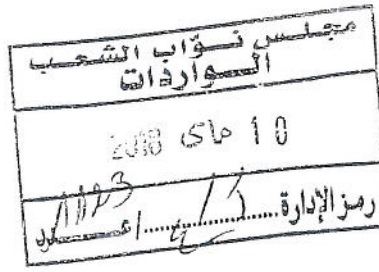 مجلس نوّاب الشعب
الواردات
10 ماي 2018
رمز الإدارة ........../ عـــدد